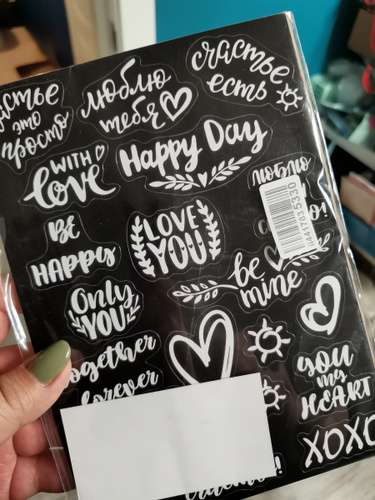 это
просто
люблю
тебя
счастье
есть
WITH
love
Happy Day
люблю
BE
HAPPY
LOVE
YOU
И41783 5330
Only
YOU
be
mine
together
forever
you
my
HEART
XOXO